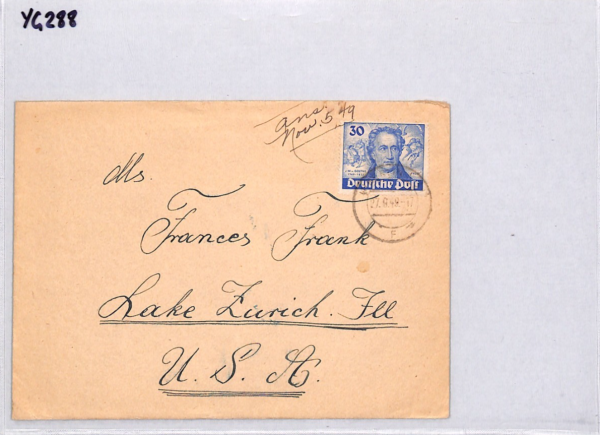 YG288
ans.
Nov. 5, 49
30
Deutsche Post
27.9.49-17
F
Ms.
Frances Frank
Lake Zurich. Ill
U. S. A.